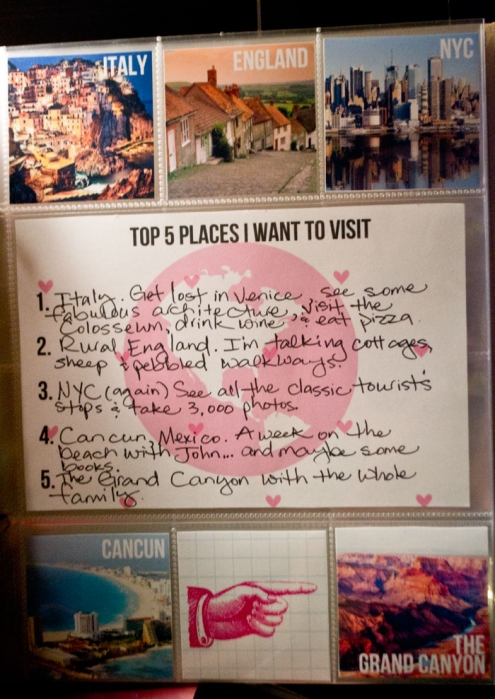 ITALY
ENGLAND
NYC
TOP 5 PLACES I WANT TO VISIT
1. Italy. Get lost in Venice, see some
fabulous architecture, visit the
Colosseum, drink wine, & eat pizza.
2. Rural England. I'm talking cottages,
sheep & pebbled walkways.
3. NYC (again) See all the classic tourists'
stops & take 3,000 photos.
4. Cancun, Mexico. A week on the
beach with John... and maybe some
books.
5. The Grand Canyon with the whole
family.
CANCUN
THE
GRAND CANYON